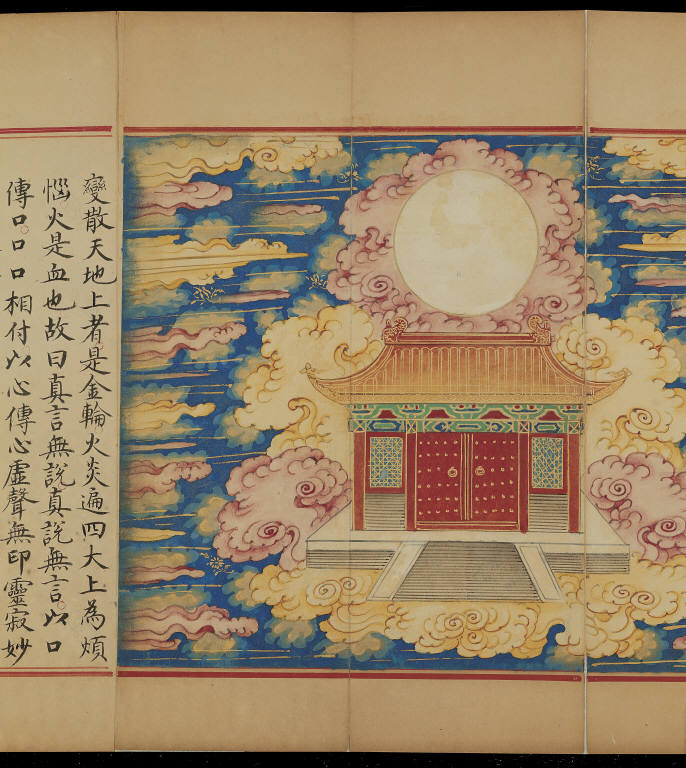 變散天地上者是金輪火炎遍四大上為煩
惱火是血也故曰真言無說真說無言。以口
傳口。口口相付以心傳心虛聲無印靈寂妙